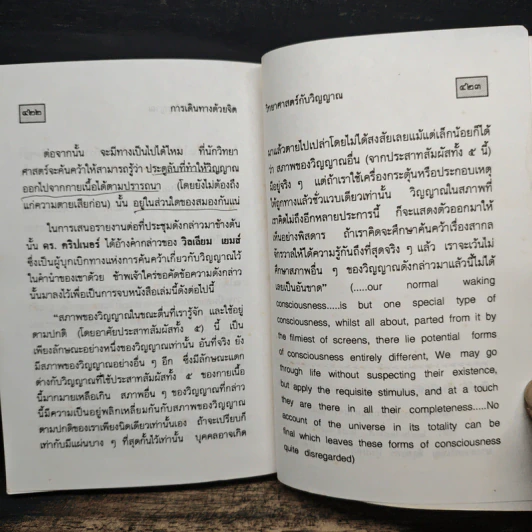 ๔๒๒
การเดินทางด้วยจิต
ต่อจากนั้น จะมีทางเป็นไปได้ไหม ที่นักวิทยา
ศาสตร์จะค้นคว้าให้สามารถรู้ว่า ประตูลับที่ทำให้วิญญาณ
ออกไปจากกายเนื้อได้ตามปรารถนา (โดยยังไม่ต้องถึง
แก่ความตายเสียก่อน) นั้น อยู่ในส่วนใดของสมองกันแน่
ในการเสนอรายงานต่อที่ประชุมดังกล่าวมาข้างต้น
นั้น ดร. คริปเนอร์ ได้อ้างคำกล่าวของ วิลเลียม เยมส์
ซึ่งเป็นผู้บุกเบิกทางแห่งการค้นคว้าเกี่ยวกับวิญญาณไว้
ในคำนำของเขาด้วย ข้าพเจ้าใคร่ขอคัดข้อความดังกล่าว
นั้นมาลงไว้เพื่อเป็นการจบหนังสือเล่มนี้ดังต่อไปนี้
“สภาพของวิญญาณในขณะตื่นที่เรารู้จัก และใช้อยู่
ตามปกติ (โดยอาศัยประสาทสัมผัสทั้ง ๕) นี้ เป็น
เพียงลักษณะอย่างหนึ่งของวิญญาณเท่านั้น อันที่จริง ยัง
มีสภาพของวิญญาณอย่างอื่น ๆ อีก ซึ่งมีลักษณะแตก
ต่างกับวิญญาณที่ใช้ประสาทสัมผัสทั้ง ๕ ของกายเนื้อ
นี้มากมายเหลือเกิน สภาพอื่น ๆ ของวิญญาณที่กล่าว
นี้มีความเป็นอยู่พลิกเหลี่ยมกันกับสภาพของวิญญาณ
ตามปกติของเราเพียงนิดเดียวเท่านั้นเอง ถ้าจะเปรียบก็
เท่ากับมีแผ่นบาง ๆ ที่สุดกั้นไว้เท่านั้น บุคคลอาจเกิด
วิทยาศาสตร์กับวิญญาณ
๔๒๓
มาแล้วตายไปเปล่าโดยไม่ได้สงสัยเลยแม้แต่เล็กน้อยก็ได้
ว่า สภาพของวิญญาณอื่น (จากประสาทสัมผัสทั้ง ๕ นี้)
มีอยู่จริง ๆ แต่ถ้าเราใช้เครื่องกระตุ้นหรือประกอบเหตุ
ให้ถูกทางแล้วชั่วแวบเดียวเท่านั้น วิญญาณในสภาพที่
เราคิดไม่ถึงอีกหลายประการนี้ ก็จะแสดงตัวออกมาให้
เห็นอย่างพิสดาร ถ้าเราคิดจะศึกษาค้นคว้าเรื่องสากล
จักรวาลให้ได้ความรู้กันถึงที่สุดจริง ๆ แล้ว เราจะเว้นไม่
ศึกษาสภาพอื่น ๆ ของวิญญาณดังกล่าวมาแล้วนี้ไม่ได้
เลยเป็นอันขาด” (.....our normal waking
consciousness.....is but one special type of
consciousness, whilst all about, parted from it by
the filmiest of screens, there lie potential forms
of consciousness entirely different, We may go
through life without suspecting their existence,
but apply the requisite stimulus, and at a touch
they are there in all their completeness.....No
account of the universe in its totality can be
final which leaves these forms of consciousness
quite disregarded)